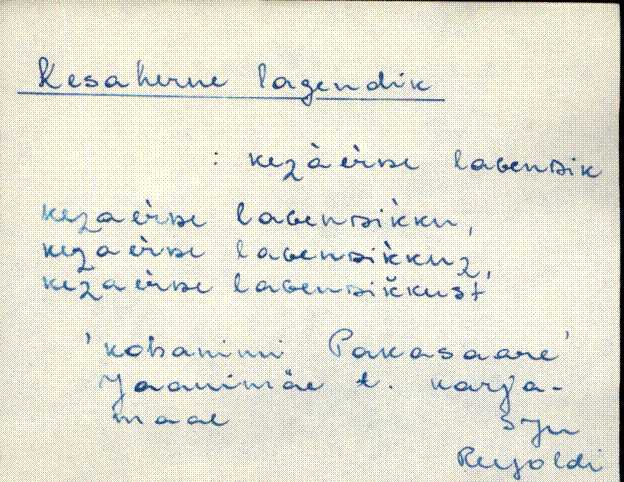 Kesaherne lagendik
: kezàèrne laɢenᴅik
kezaèrne laɢenᴅìkku,
kezaèrne laɢenᴅìkkuz,
kezaèrne laɢenᴅikkust
'kohanimi Pakasaare'
Jaanimäe t. karja-
maal